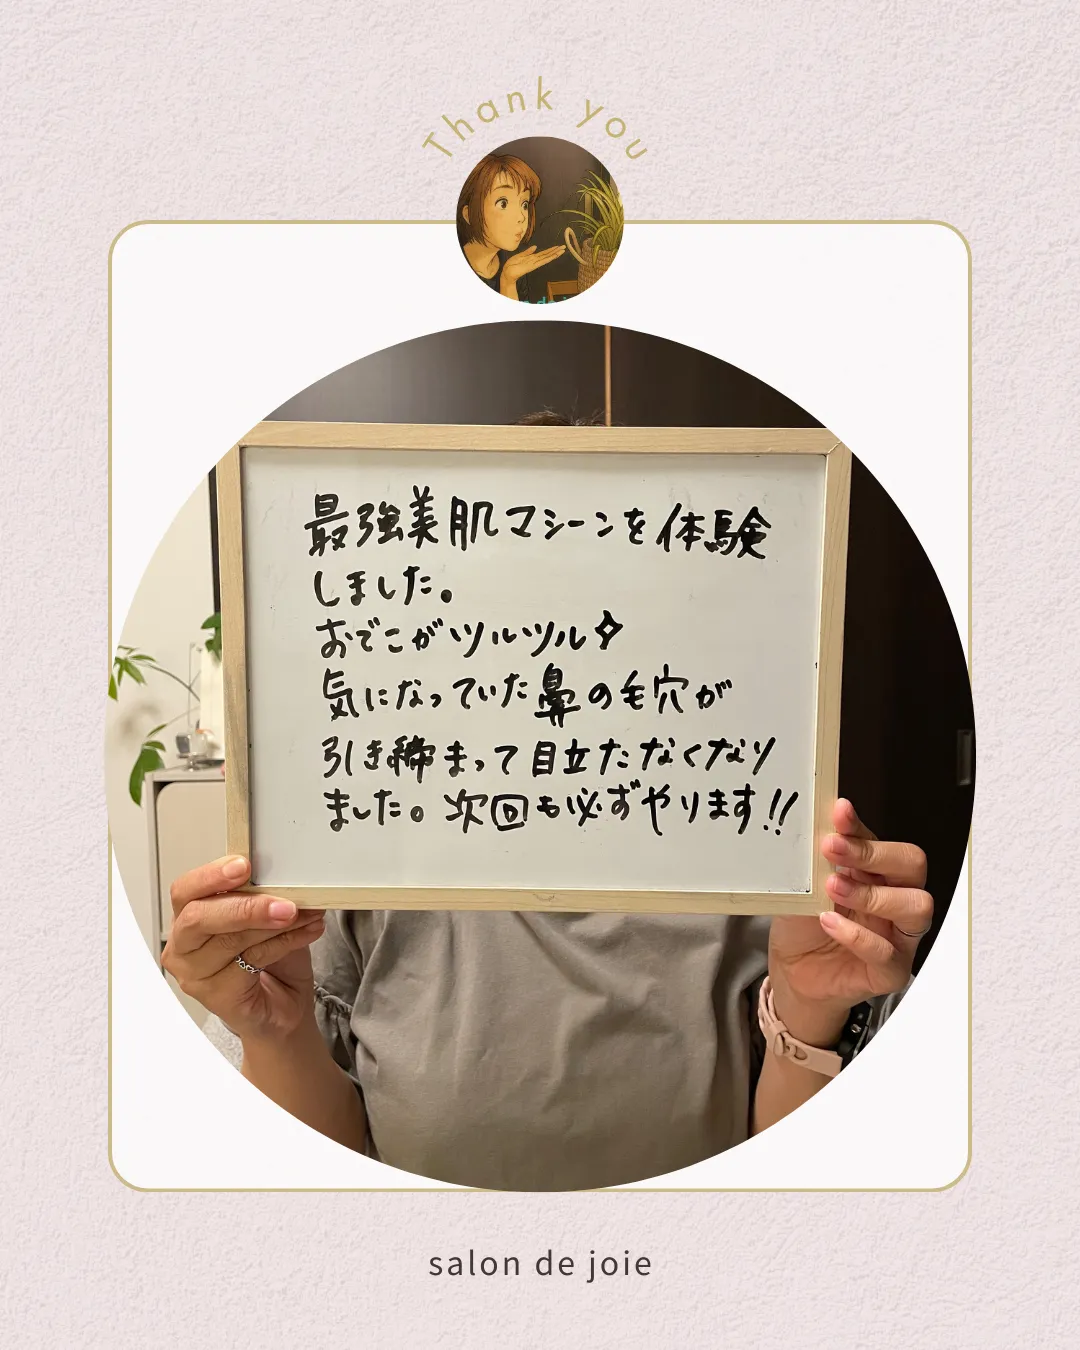 Thank you
最強美肌マシーンを体験
しました。
おでこがツルツル✧
気になっていた鼻の毛穴が
引き締まって目立たなくなり
ました。次回も必ずやります!!
salon de joie